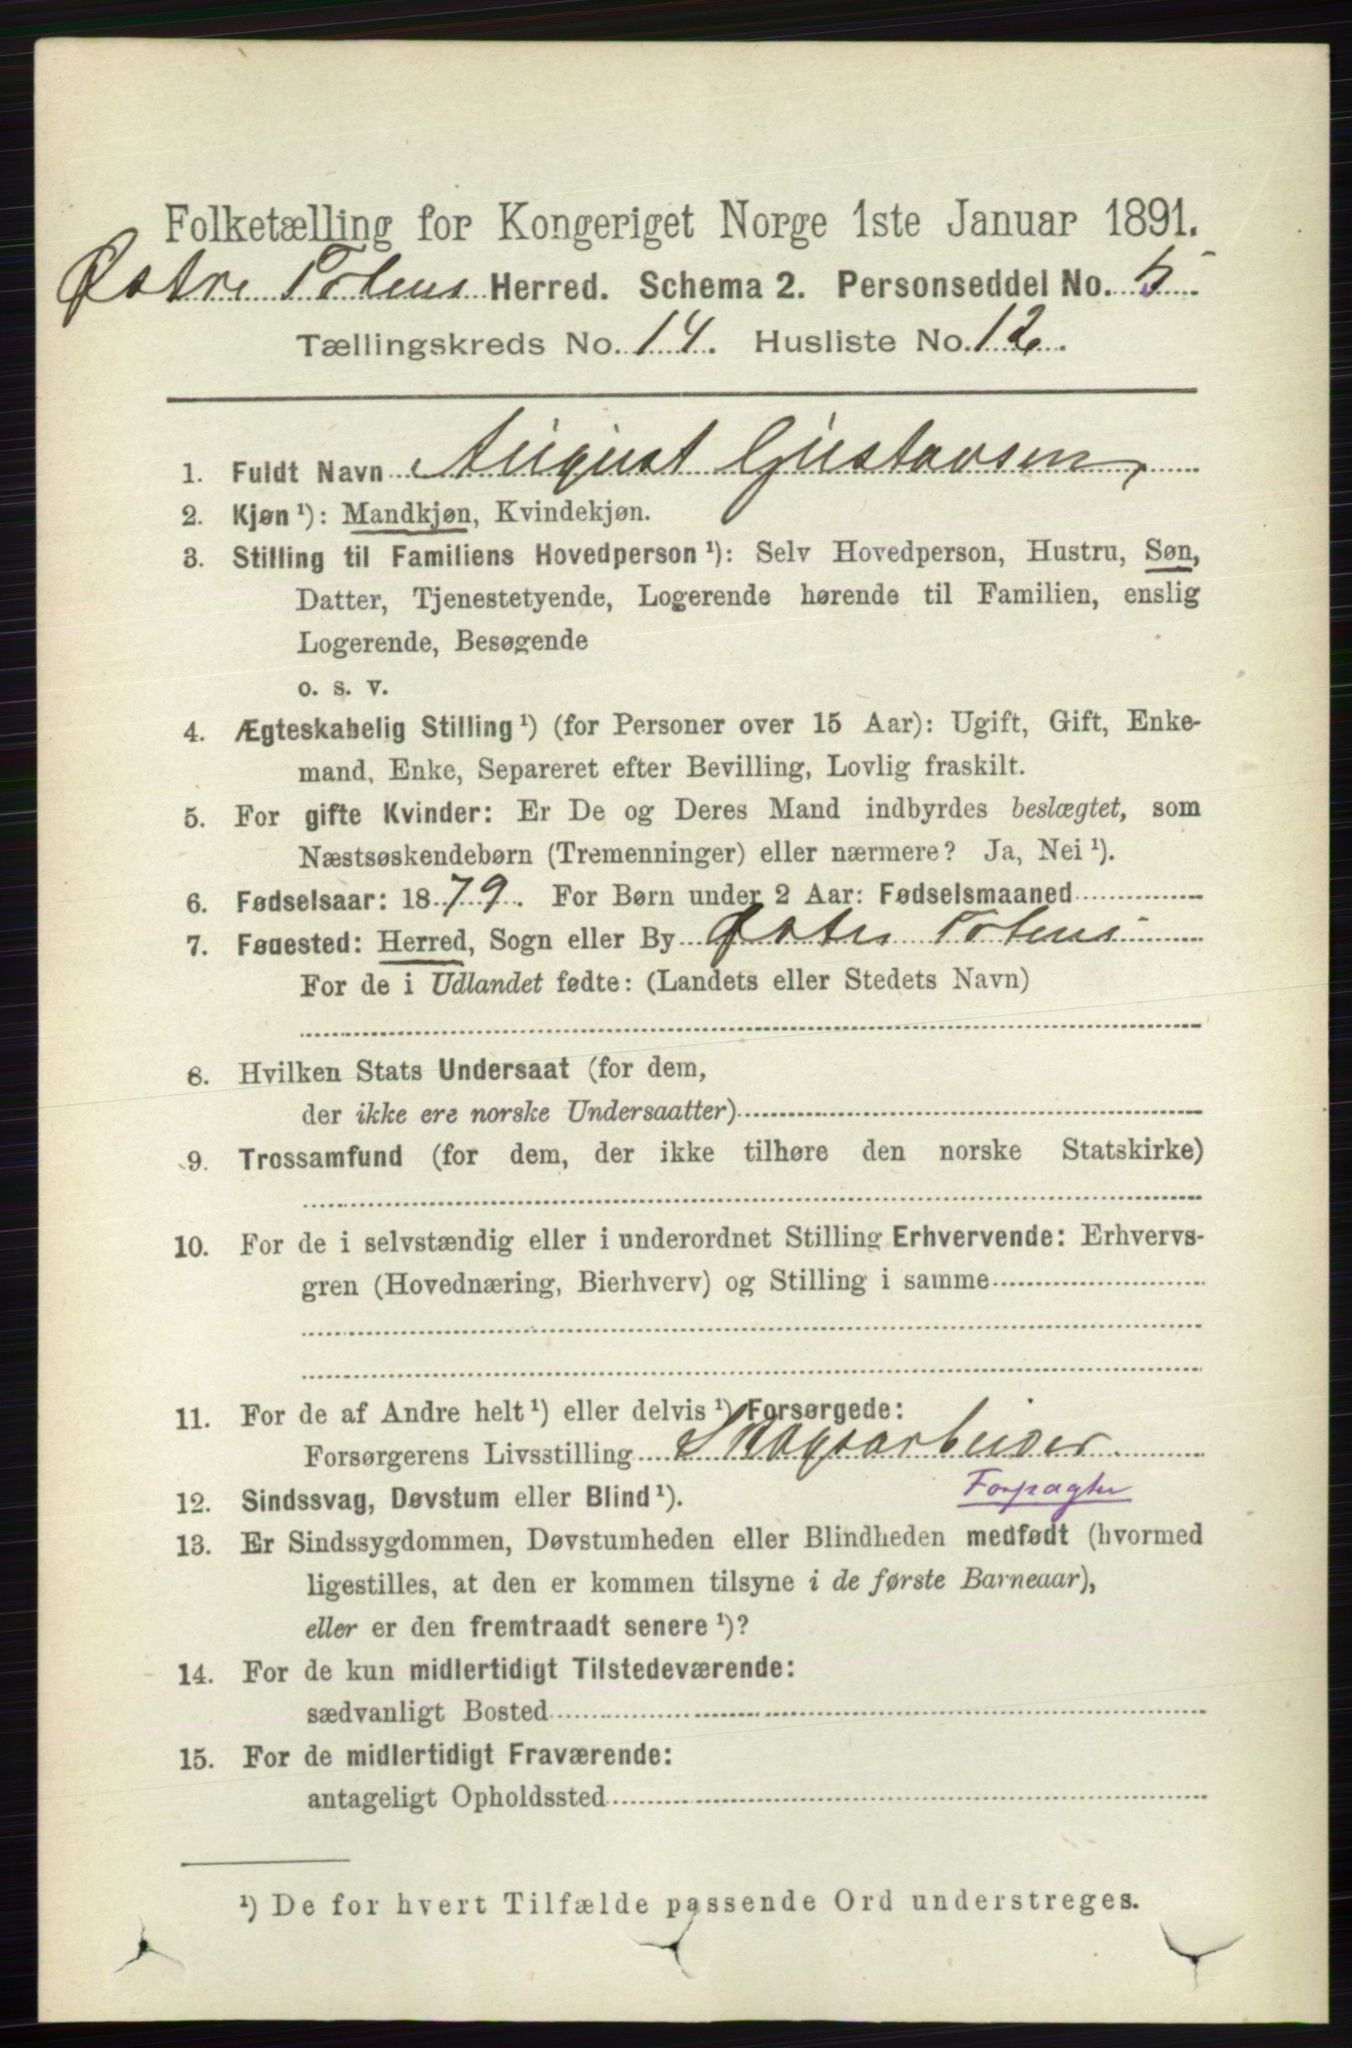 Folketælling for Kongeriget Norge 1ste Januar 1891.
Østre Totens Herred. Schema 2. Personseddel No. 5
Tællingskreds No. 14. Husliste No. 12.
1. Fuldt Navn August Gustavsen,
2. Kjøn ¹): Mandkjøn, Kvindekjøn.
3. Stilling til Familiens Hovedperson ¹): Selv Hovedperson, Hustru, Søn,
Datter, Tjenestetyende, Logerende hørende til Familien, enslig
Logerende, Besøgende
o. s. v.
4. Ægteskabelig Stilling ¹) (for Personer over 15 Aar): Ugift, Gift, Enke-
mand, Enke, Separeret efter Bevilling, Lovlig fraskilt.
5. For gifte Kvinder: Er De og Deres Mand indbyrdes beslægtet, som
Næstsøskendebørn (Tremenninger) eller nærmere? Ja, Nei ¹).
6. Fødselsaar: 1879. For Børn under 2 Aar: Fødselsmaaned
7. Fødested: Herred, Sogn eller By Østre Totens
For de i Udlandet fødte: (Landets eller Stedets Navn)
8. Hvilken Stats Undersaat (for dem,
der ikke ere norske Undersaatter)
9. Trossamfund (for dem, der ikke tilhøre den norske Statskirke)
10. For de i selvstændig eller i underordnet Stilling Erhvervende: Erhvervs-
gren (Hovednæring, Bierhverv) og Stilling i samme
11. For de af Andre helt ¹) eller delvis ¹) Forsørgede:
Forsørgerens Livsstilling Skogsarbeider
Forpagter
12. Sindssvag, Døvstum eller Blind ¹).
13. Er Sindssygdommen, Døvstumheden eller Blindheden medfødt (hvormed
ligestilles, at den er kommen tilsyne i de første Barneaar),
eller er den fremtraadt senere ¹)?
14. For de kun midlertidigt Tilstedeværende:
sædvanligt Bosted
15. For de midlertidigt Fraværende:
antageligt Opholdssted
¹) De for hvert Tilfælde passende Ord understreges.